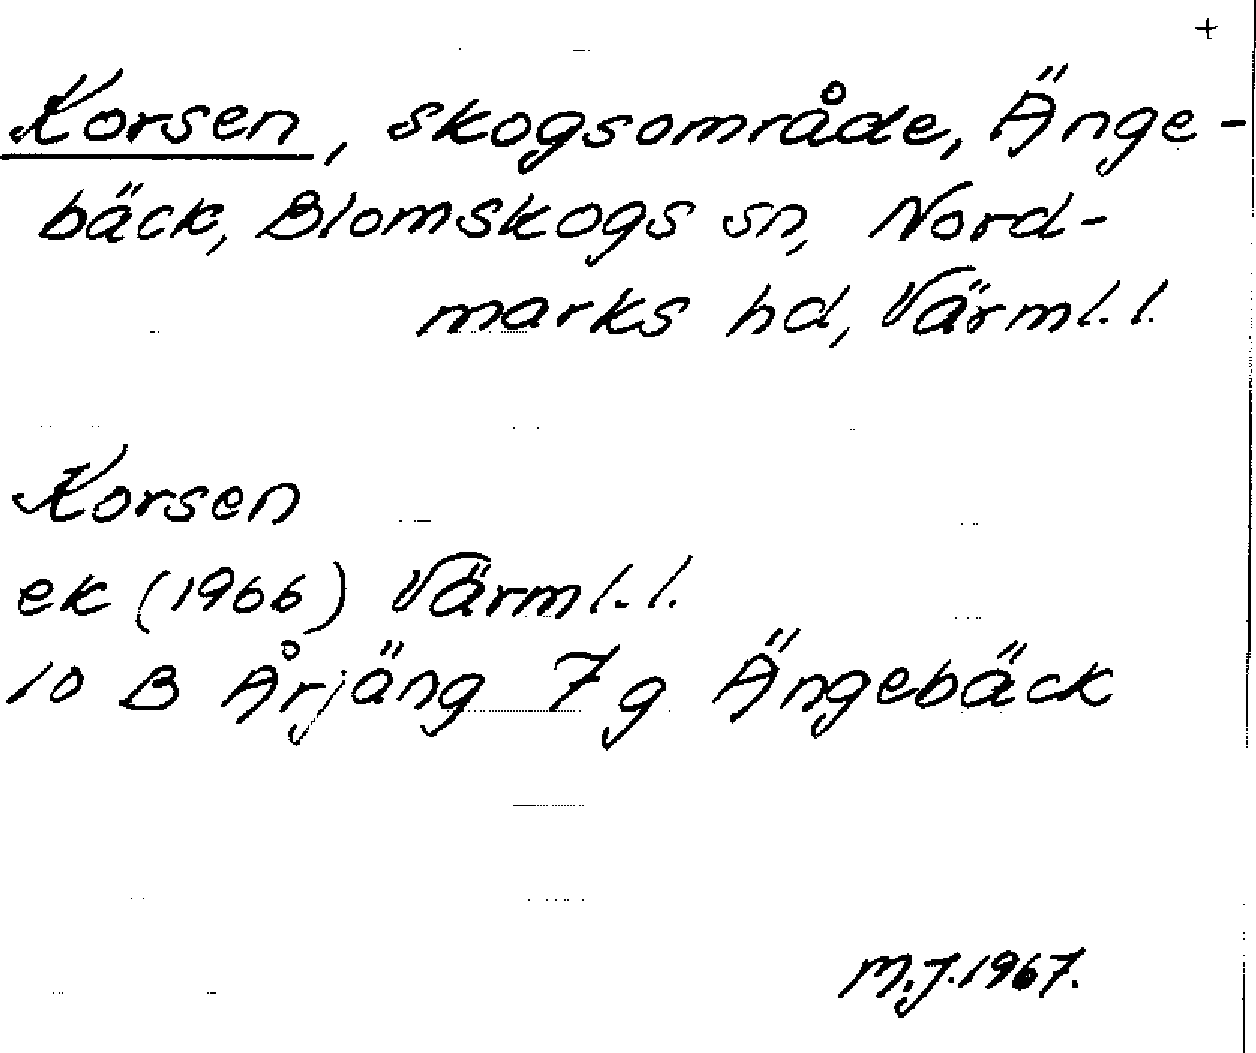 +
Korsen, skogsområde, Änge-
bäck, Blomskogs sn, Nord-
marks hd, Värml. l.
Korsen
ek (1966) Värml. l.
10 B Årjäng 7 g Ängebäck
M.J. 1967.